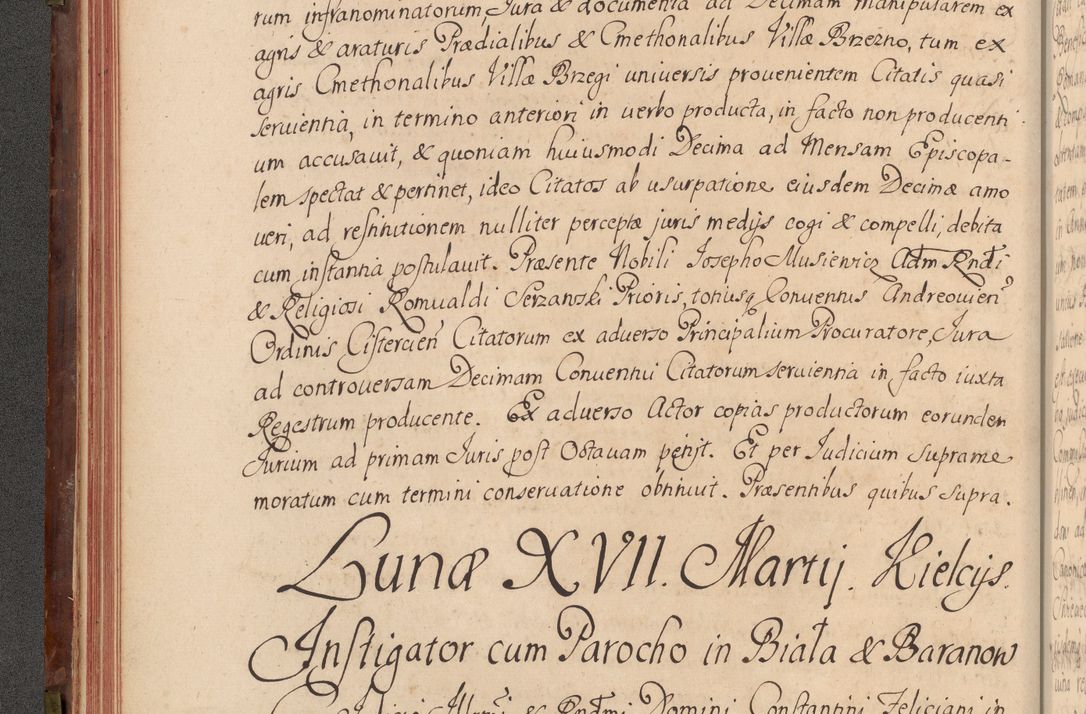 rum infranominatorum, Jura & documenta ad Decimam manipularem ex
agris & araturis Prædialibus & Cmethonalibus Villæ Brzezno, tum ex
agris Cmethonalibus Villæ Brzegi universis provenientem Citatis quasi
servientia, in termino anteriori in verbo producta, in facto non producenti
um accusavit, & quoniam huiusmodi Decima ad Mensam Episcopa-
lem spectat & pertinet, ideo Citatos ab usurpatione eiusdem Decimæ amo
veri, ad restitutionem nulliter perceptæ juris medijs cogi & compelli, debita
cum instantia postulavit. Præsente Nobili Josepho Musiewicz Adm Rndi
& Religiosi Romualdi Serzanski Prioris, totiusq Conventus Andreovien
Ordinis Cistercien Citatorum ex adverso Principalium Procuratore, Jura
ad controversam Decimam Conventui Citatorum servientia in facto iuxta
Regestrum producente. Ex adverso Actor copias productorum eorundem
Jurium ad primam Juris post Octavam petijt. Et per Judicium supræme
moratum cum termini conservatione obtinuit. Præsentibus quibus supra.
Lunæ XVII. Martij. Kielcijs.
Instigator cum Parocho in Biała & Baranow
Illmi & Rndmi Domini Constantini Feliciani in